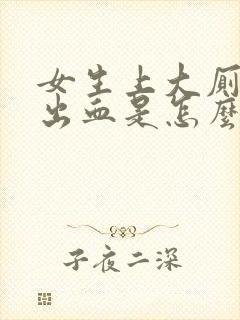 女生上大厕
出血是怎麼
子夜二深